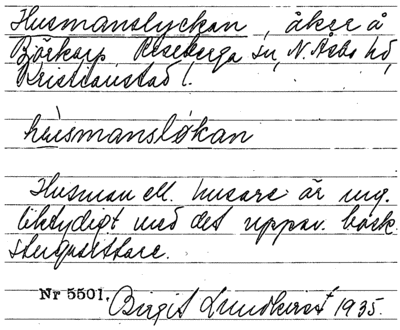 Husmanslyckan, åker å
Björkarp, Riseberga sn, N. Åsbo hd,
Kristianstad l.
hùsmanslo̧kan
Husman ell. husare är ung.
liktydigt med det uppsv. back-
stugusittare.
Nr 5501. Birgit Lundkvist 1935.